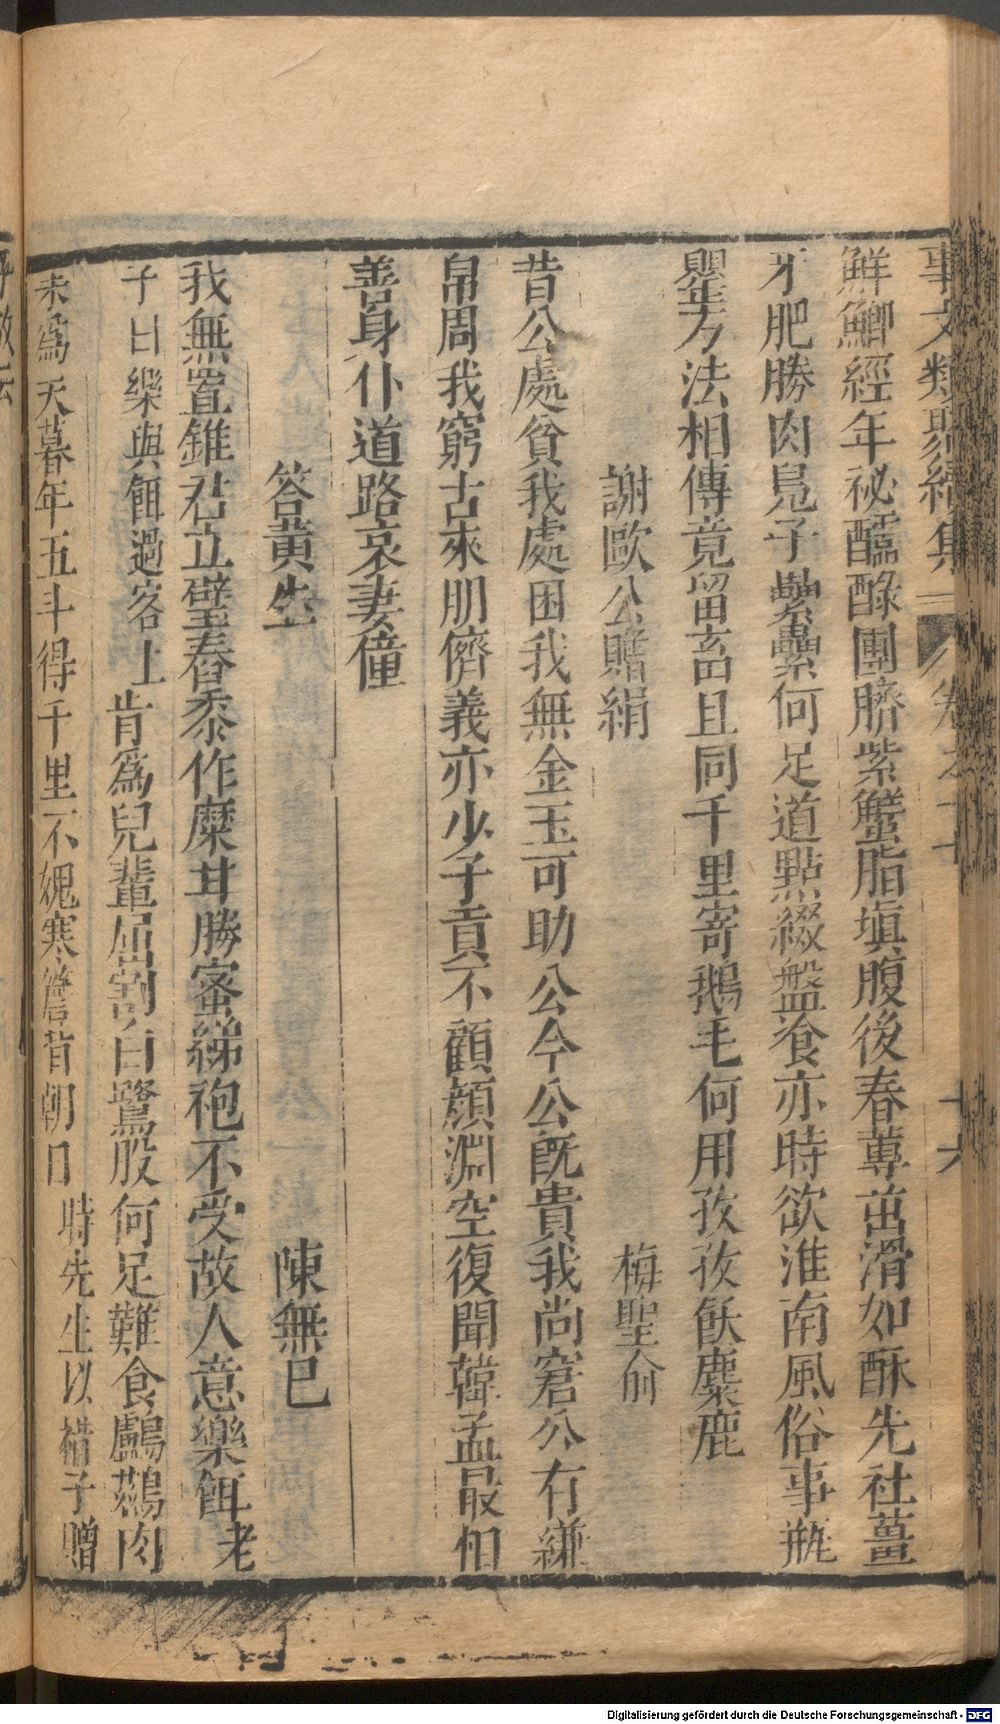 事文類聚續集 卷之十 十六
鮮鯽經年祕醽醁團臍紫蟹脂塡腹後春蓴茁滑如酥先社薑
牙肥勝肉鳧子纍纍何足道點綴盤飧亦時欲淮南風俗事瓶
罌方法相傳竟留畜且同千里寄鵝毛何用孜孜飫麋鹿
謝歐公贈絹 梅聖俞
昔公處貧我處困我無金玉可助公今公旣貴我尚窘公冇縑
帛周我窮古來朋儕義亦少子貢不顧顏淵空復聞韓孟最相
善身仆道路哀妻僮
答黃生 陳無已
我無置錐君立壁舂黍作糜甘勝蜜綈袍不受故人意樂餌老
子曰樂與餌過客止肯爲兒輩屈割白鷺股何足難食鸕鷀肉
未爲天暮年五斗得千里不媿寒簷背朝日時先生以褚子贈
Digitalisierung gefördert durch die Deutsche Forschungsgemeinschaft - DFG